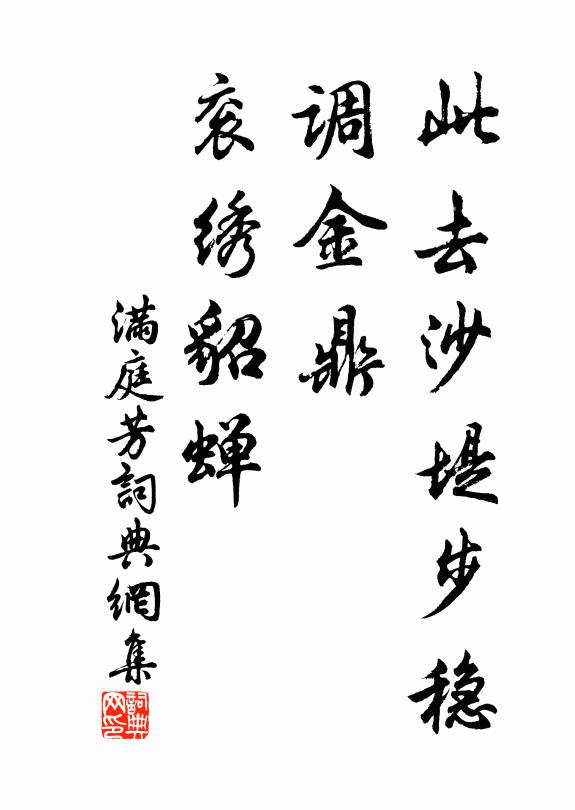 此去沙堤步稳
调金鼎
衮绣貂蝉
满庭芳詞典網集
詞典
网印